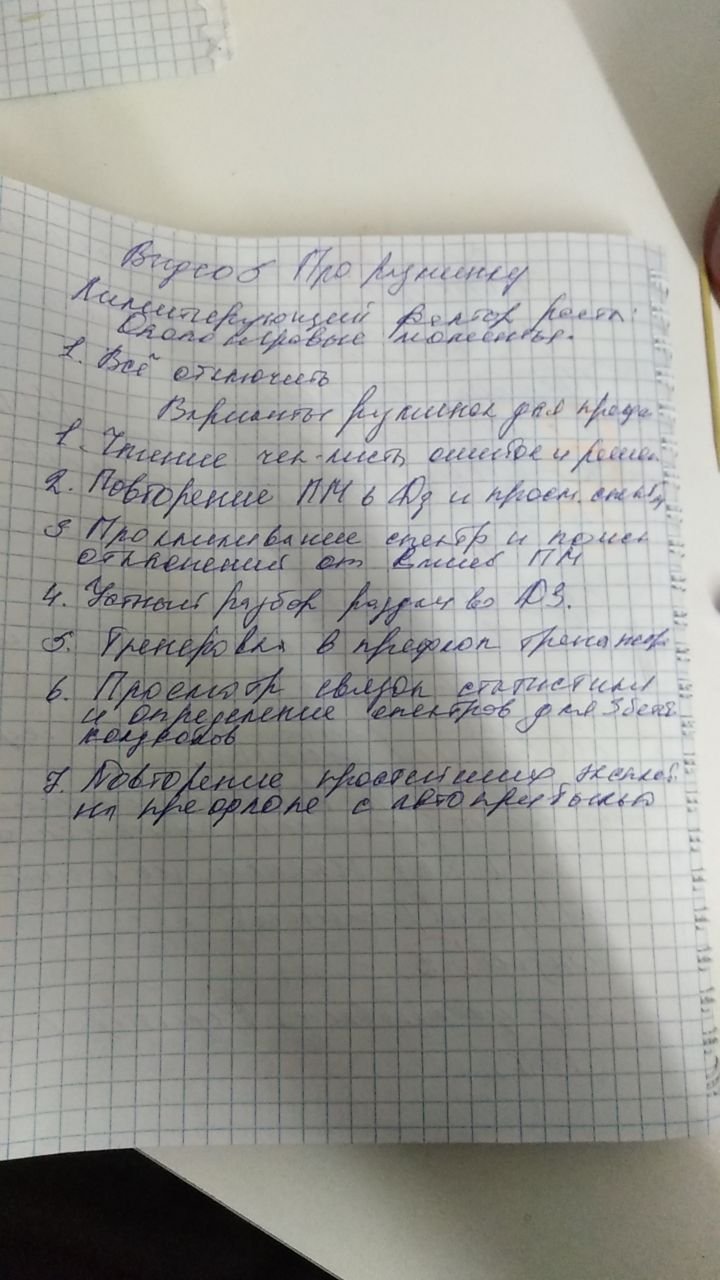 Видео 5 Про разминку
Лимитирующий вектор роста:
Околоигровые моменты.
1. Всё отключить
Варианты разминок для профи
1. Чтение чек-листа, ошибок и
2. Повторение ПМ в ДЗ и просм. спектр
3 Прокликивание спектр и поиск
отклонений от ПМ
4. Устный разбор раздач во ДЗ.
5. Тренеровка в префлоп тренажоре
6. Просмотр связок статистики
и определение спектров для 3бета
колдколов
7. Повторение простейших
на префлопе с автоприбылью